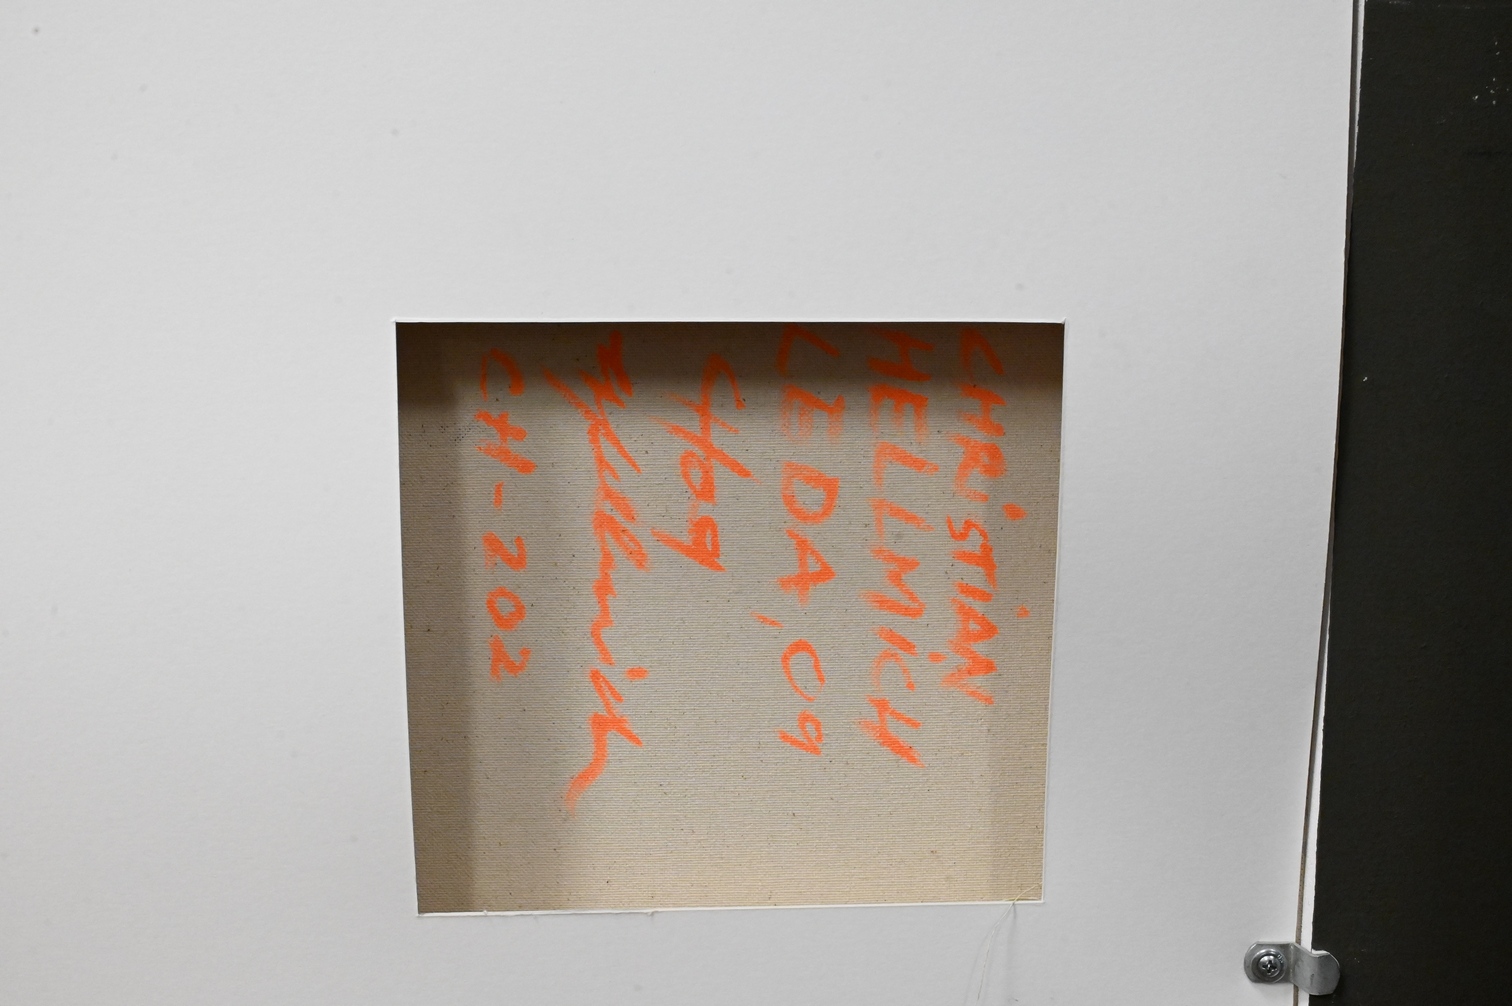 CHRiSTiAN
HELLMiCH
LEDA, 09
CH09
Hellmich
CH-202